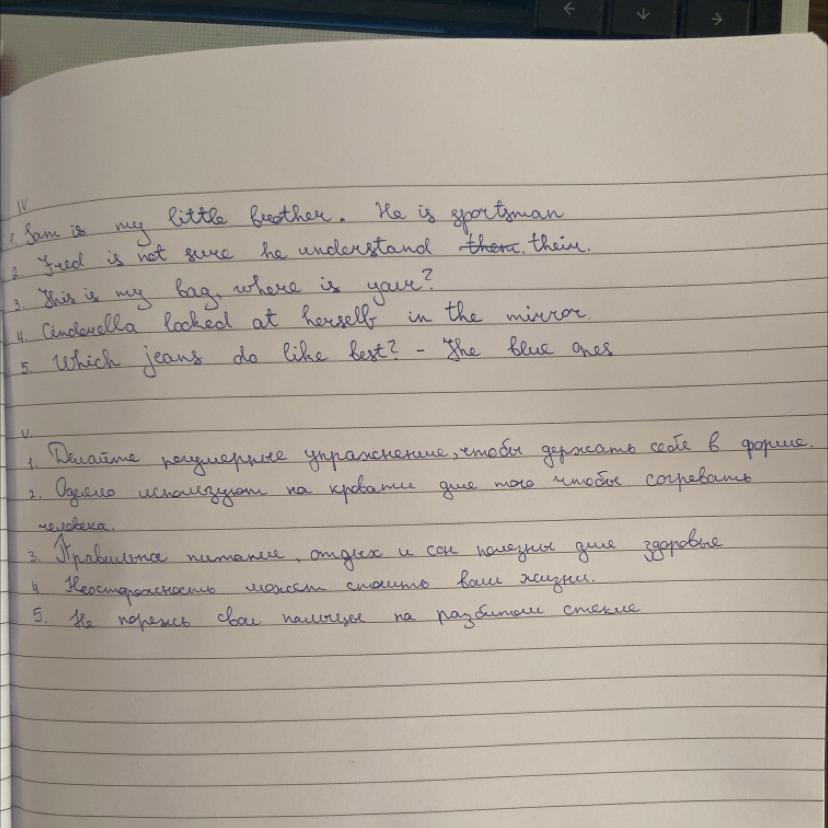 IV.
1. Sam is my little brother. He is sportsman
2. Fred is not sure he understand them. their.
3. This is my bag, where is your?
4. Cinderella looked at herself in the mirror.
5. Which jeans do like best? - The blue ones
V.
1. Делайте регулярные упражнение, чтобы держать себя в форме.
2. Одеяло используют на кровати для того чтобы согревать
человека.
3. Правильное питание, отдых и сон полезны для здоровье
4 Неосторожность может стоить вам жизни.
5. Не порежь свои пальцы на разбитом стекле